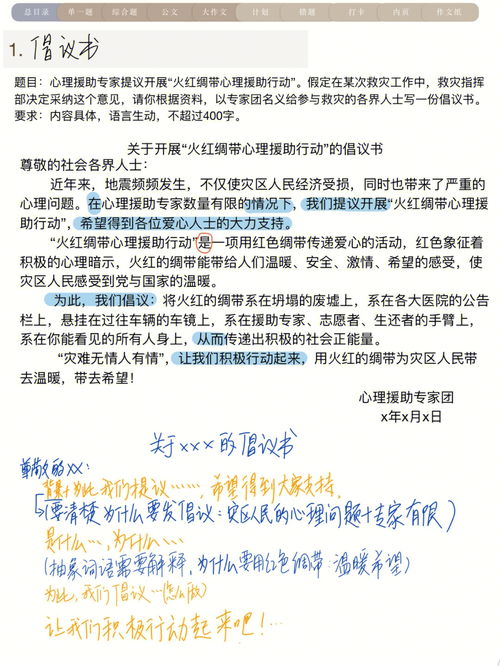 总目录 单一题 综合题 公文 大作文 计划 错题 打卡 内页 作文纸
1. 倡议书
题目：心理援助专家提议开展“火红绸带心理援助行动”。假定在某次救灾工作中，救灾指挥
部决定采纳这个意见，请你根据资料，以专家团名义给参与救灾的各界人士写一份倡议书。
要求：内容具体，语言生动，不超过400字。
关于开展“火红绸带心理援助行动”的倡议书
尊敬的社会各界人士：
近年来，地震频频发生，不仅使灾区人民经济受损，同时也带来了严重的
心理问题。在心理援助专家数量有限的情况下，我们提议开展“火红绸带心理援
助行动”，希望得到各位爱心人士的大力支持。
“火红绸带心理援助行动”是一项用红色绸带传递爱心的活动，红色象征着
积极的心理暗示，火红的绸带能带给人们温暖、安全、激情、希望的感受，使
灾区人民感受到党与国家的温暖。
为此，我们倡议：将火红的绸带系在坍塌的废墟上，系在各大医院的公告
栏上，悬挂在过往车辆的车镜上，系在援助专家、志愿者、生还者的手臂上，
系在你能看见的所有人身上，从而传递出积极的社会正能量。
“灾难无情人有情”，让我们积极行动起来，用火红的绸带为灾区人民带
去温暖，带去希望！
心理援助专家团
x年x月x日
关于xxx的倡议书
尊敬的xx：
背景+为此我们提议……，希望得到大家支持。
(要清楚为什么要发倡议：灾区人民的心理问题+专家有限)
是什么…，为什么…
(抽象词语需要解释，为什么要用红色绸带：温暖希望)
为此，我们倡议…(怎么做)
让我们积极行动起来吧！…